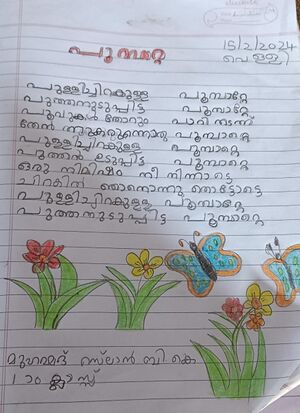 പൂമ്പാറ്റ
15/2/2024
വെള്ളി
പുള്ളിച്ചിറകുള്ള പൂമ്പാറ്റേ
പുത്തനുടുപ്പിട്ട പൂമ്പാറ്റേ
പൂവുകൾ തോറും പാറി നടന്ന്
തേൻ നുകരുന്നൊരു പൂമ്പാറ്റെ
പുള്ളിച്ചിറകുള്ള പൂമ്പാറ്റെ
പുത്തൻ ഉടുപ്പിട്ട പൂമ്പാറ്റെ
ഒരു നിമിഷം നീ നിന്നാട്ടെ
ചിറകിൽ ഞാനൊന്നു തൊട്ടോട്ടെ
പുള്ളിച്ചിറകുള്ള പൂമ്പാറ്റെ
പുത്തനുടുപ്പിട്ട പൂമ്പാറ്റെ
മുഹമ്മദ് റസ്‌ലാൻ ബി കെ
1 ാം ക്ലാസ്സ്